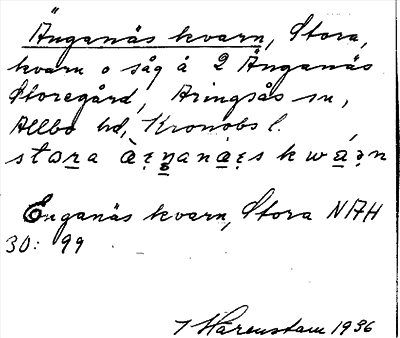 Änganäs kvarn, Stora,
kvarn o såg å 2 Änganäs
Storegård, Aringsås sn,
Allbo hd, Kronobs l.
stora ànganäs kwan
Enganäs kvarn, Stora NAH
30: 99
Härenstam 1936